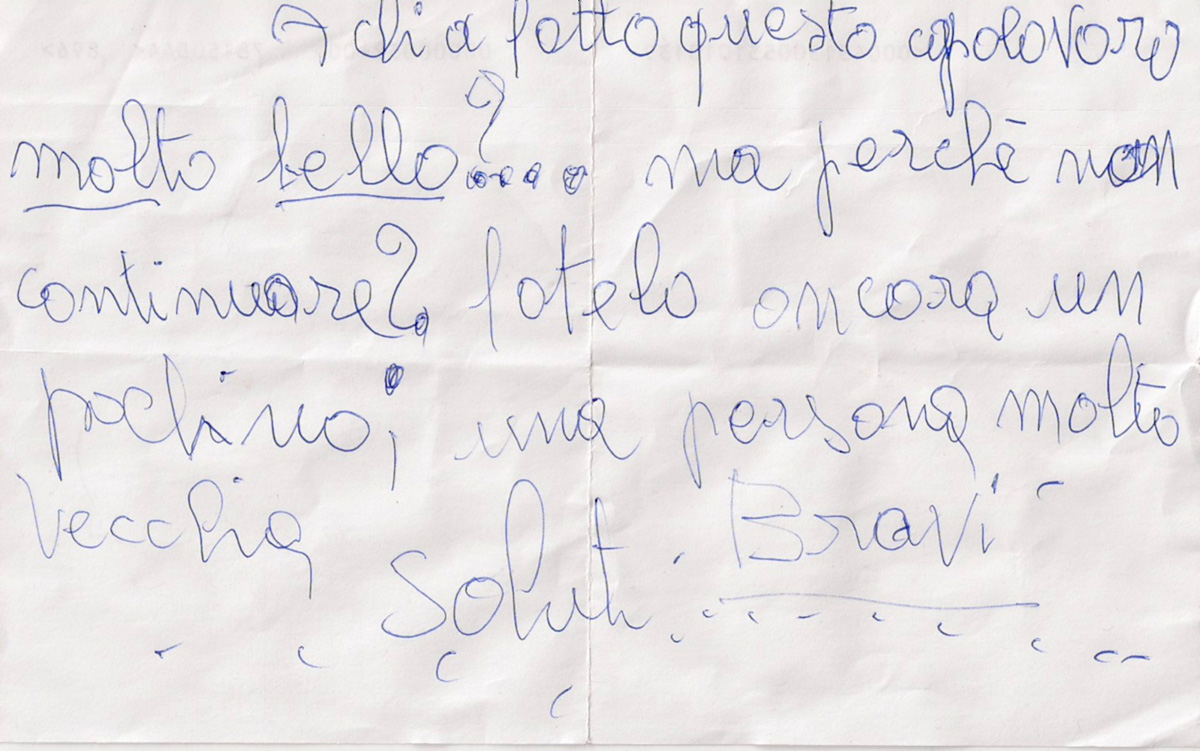 chi a fatto questo capolavoro
molto bello?.... ma perchè non
continuare? fatelo ancora un
pochino; una persona molto
vecchia
Saluti: Bravi